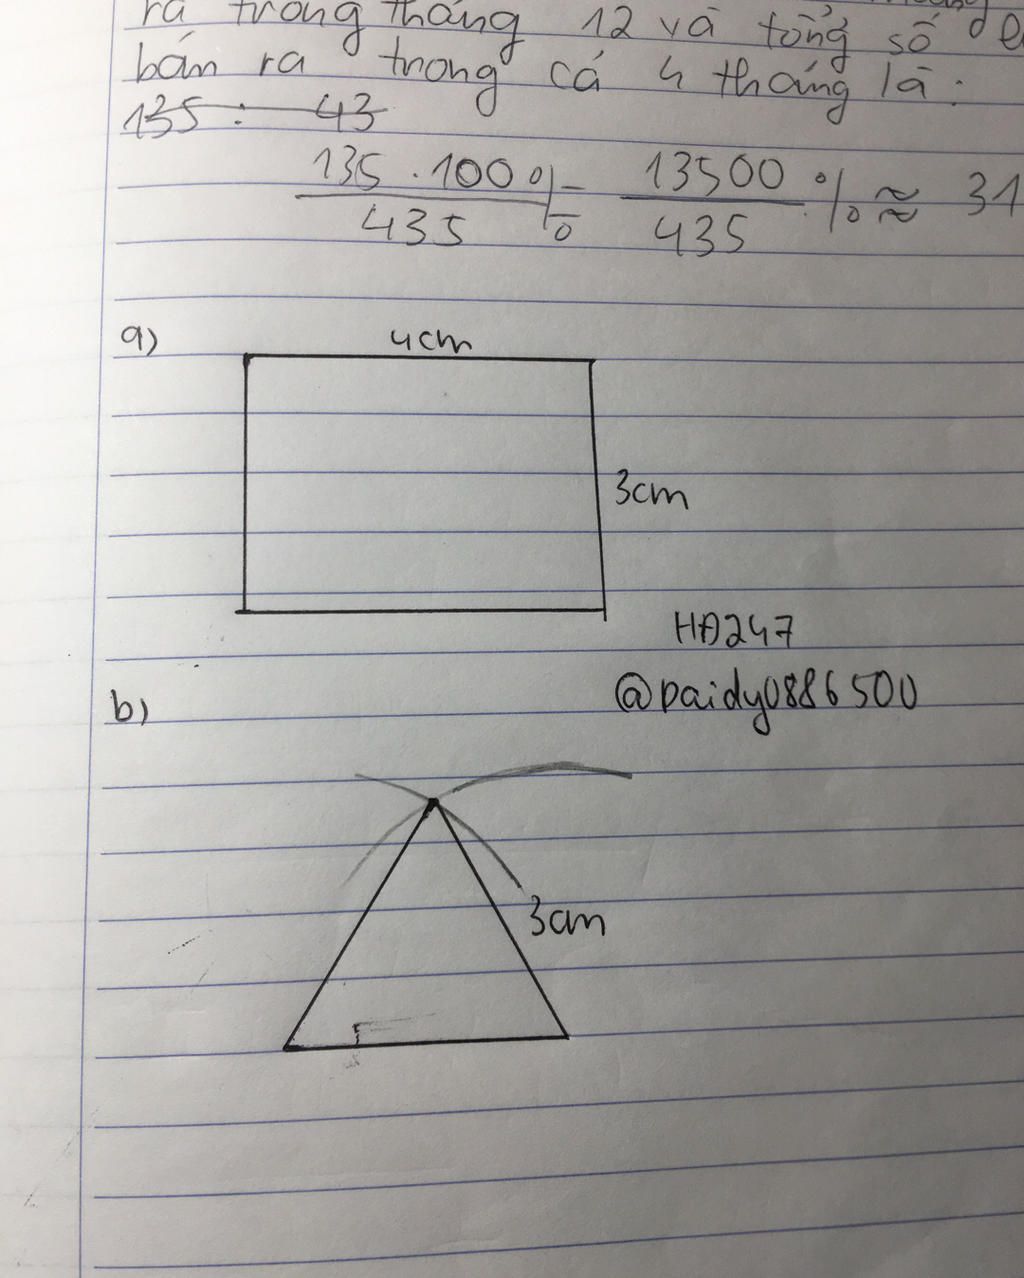 ra trong tháng 12 và tổng số
bán ra trong cả 4 tháng là:
135 : 43
135 . 100 % = 13500 % ≈ 31
435 435
a)
4cm
3cm
HĐ247
@paidy0886500
b)
3cm